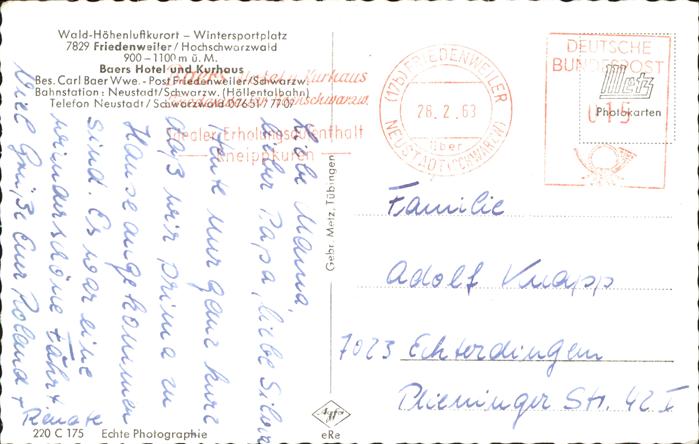 Wald-Höhenluftkurort – Wintersportplatz
7829 Friedenweiler / Hochschwarzwald
900–1100 m ü. M.
Baers Hotel und Kurhaus
Bes. Carl Baer Wwe. - Post Friedenweiler/Schwarzw.
Bahnstation: Neustadt/Schwarzw. (Höllentalbahn)
Telefon Neustadt/Schwarzwald 07651/7707
Kurhaus
Idealer Erholungsaufenthalt
Kneippkuren
(17b) FRIEDENWEILER
26.2.63
über
NEUSTADT (SCHWARZW)
DEUTSCHE
BUNDESPOST
015
Metz
Photokarten
Liebe Mama,
lieber Papa, liebe
nur ganz kurz
daß wir prima zu
Hause angekommen
sind. Es war eine
wunderschöne Fahrt
Viele Grüße Eure Roland +
Renate
Gebr. Metz, Tübingen
Familie
Adolf Knapp
7023 Echterdingen
Plieninger Str. 42 I
220 C 175 Echte Photographie
Agfa
eRe